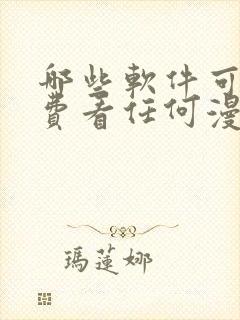 哪些軟件可
費看任何漫
瑪蓮娜